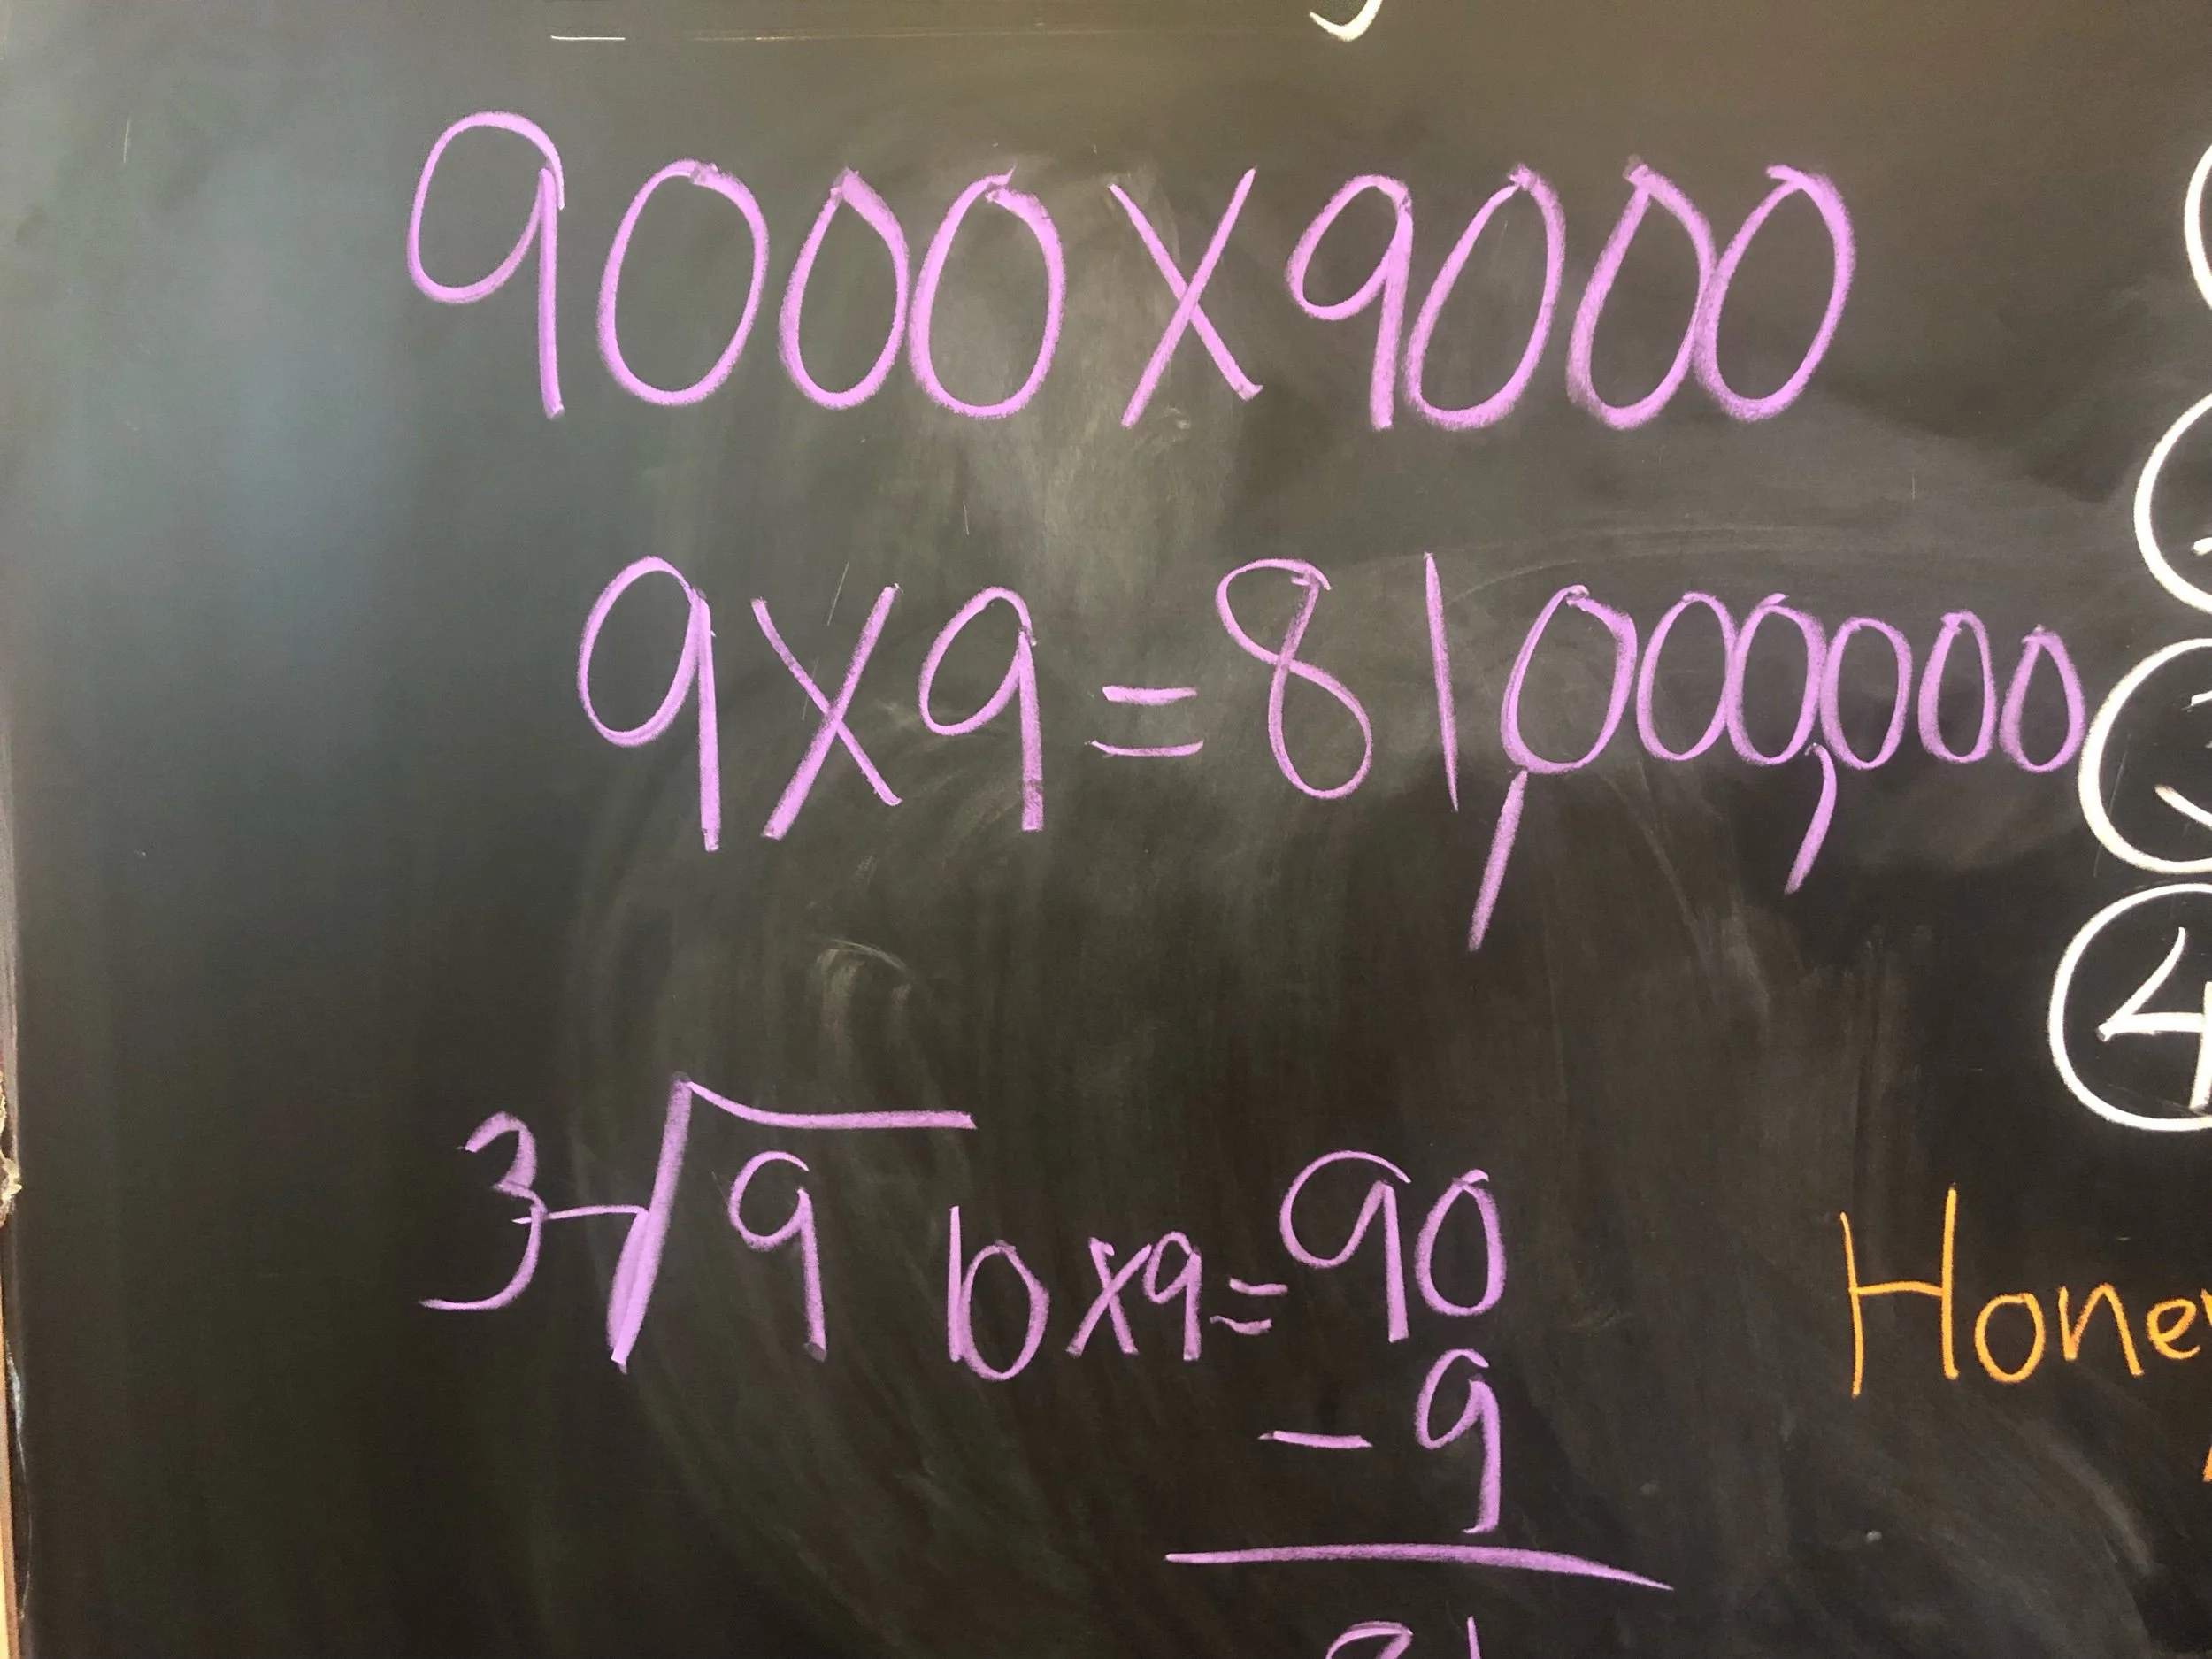 9000 x 9000
9 x 9 = 81,000,000
3√9 10 x 9 = 90
- 9
81
④
Hone